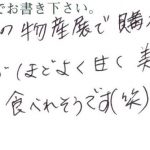 でお書き下さい。
の物産展で購
ほどよく甘く美
食べれそうです(笑)